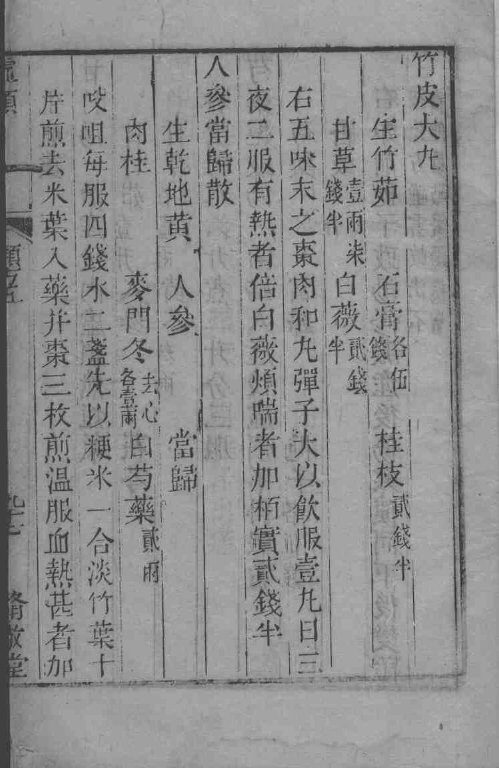 竹皮大丸
生竹茹 石膏各伍錢 桂枝貳錢半
甘草壹兩柒錢半 白薇貳錢半
右五味末之棗肉和丸彈子大以飲服壹丸日三
夜二服有熱者倍白薇煩喘者加栢實貳錢半
人參當歸散
生乾地黄 人參 當歸
肉桂 麥門冬去心各壹兩 白芍藥貳兩
㕮咀每服四錢水二盞先以粳米一合淡竹葉十
片煎去米葉入藥并棗三枚煎温服血熱甚者加